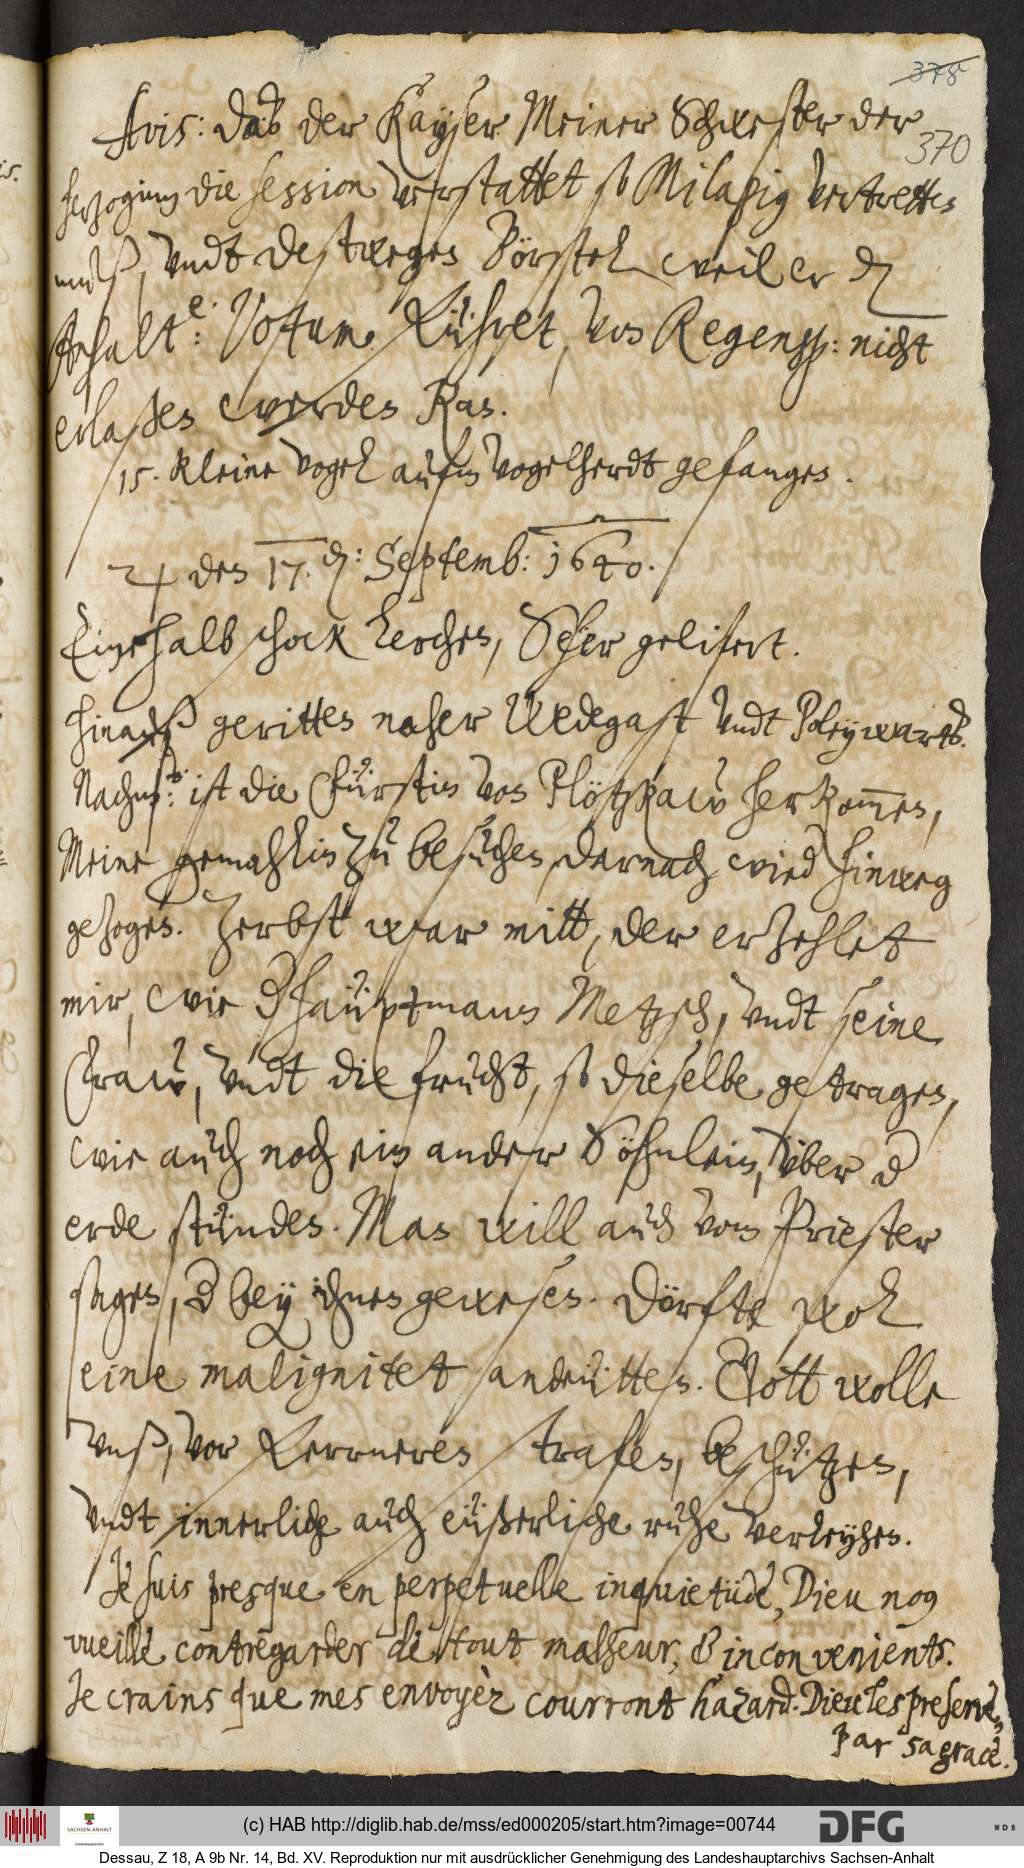 378
370
Avis: daß der Kayser Meiner Schwester der
herzoginn die session verstattet so Milagiy vertretten
muß, vndt destwegen Börstel weil er d
Anhalt:e Votum führet, von Regensp: nicht
erlaßen werden kan.
15. kleine Vogel aufm Vogelherdt gefangen.
♃ den 17. d: Septemb: 1640.
Eine halb schock Lerchen, seher gelifert.
Hinauß geritten naher Wedegast vndt Poleywarts.
Nachm: ist die Fürstin von Plötzkaw herkommen,
Meine gemahlin zu besuchen, darnach wied hinweg
gezogen. Zerbst war mitt, der erzehlet
mir, wie d hauptmann Metzsch, vndt seine
Fraw, vndt die frucht, so dieselbe getragen,
wie auch noch ein ander Söhnlein, vber d
erde stunden. Man will auch vom Priester
sagen, d bey ihnen gewesen. Dörfte wol
eine malignitet andeutten. Gott wolle
vnß, vor ferrneren strafen, beschützen,
vndt innerliche auch eüßerliche ruhe verleyhen.
Je suis presque en perpetuelle inquietüde, Dieu nous
vueille contregarder de tout malheur, & inconvenients.
Je crains que mes envoyèz courront hazard. Dieu les preserve,
par sa grace.
(c) HAB http://diglib.hab.de/mss/ed000205/start.htm?image=00744
SACHSEN-ANHALT
DFG
WDB
Dessau, Z 18, A 9b Nr. 14, Bd. XV. Reproduktion nur mit ausdrücklicher Genehmigung des Landeshauptarchivs Sachsen-Anhalt